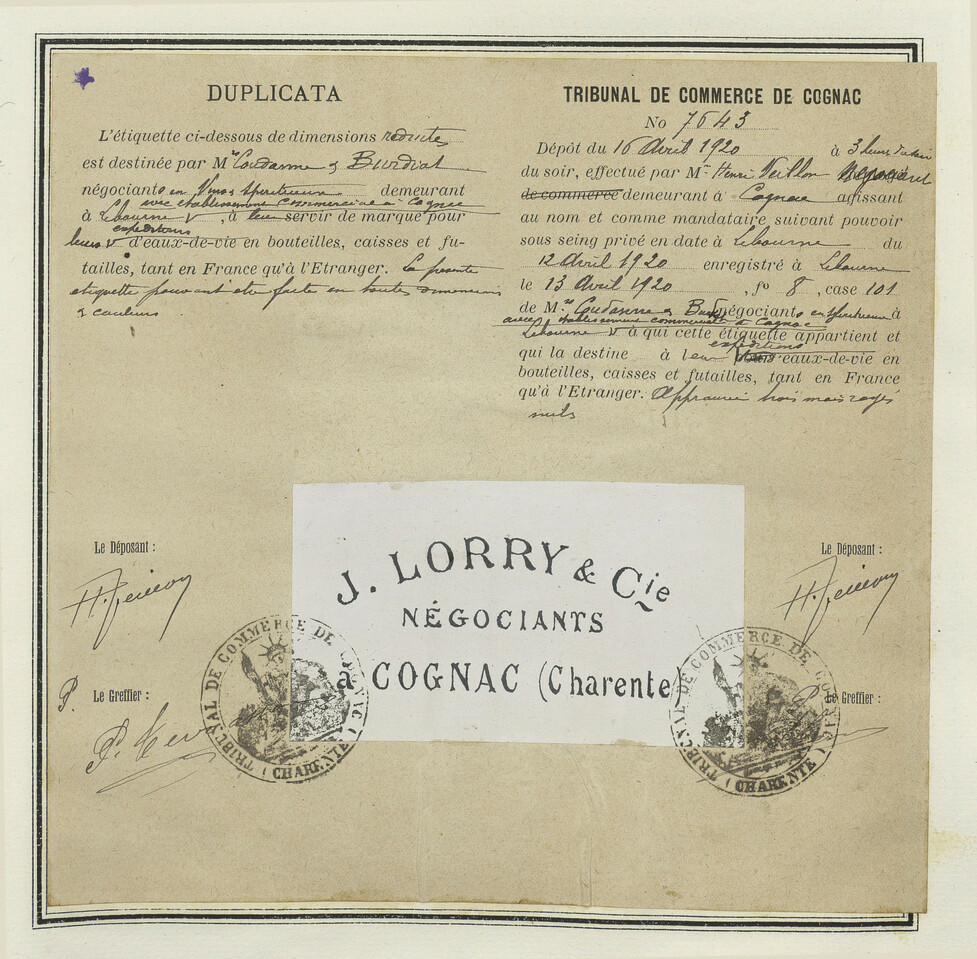 DUPLICATA
L'étiquette ci-dessous de dimensions reduites
est destinée par Mrs Coudanne & Burdiat
négociants en Vins & Spiritueux demeurant
avec établissement commercial à Cognac
à Libourne, à leur servir de marque pour
expéditions
leurs d'eaux-de-vie en bouteilles, caisses et fu-
tailles, tant en France qu'à l'Etranger. La présente
étiquette pouvant être faite en toutes dimensions
& couleurs.
TRIBUNAL DE COMMERCE DE COGNAC
No 7643
Dépôt du 16 Avril 1920 à 3 heures
du soir, effectué par Mr Henri Veillon
de commerce demeurant à Cognac agissant
au nom et comme mandataire suivant pouvoir
sous seing privé en date à Libourne du
12 Avril 1920 enregistré à Libourne
le 13 Avril 1920, fo 8, case 101
de Mrs Coudanne & négociants en spiritueux à
avec établissement commercial à Cognac
Libourne à qui cette étiquette appartient et
expéditions
qui la destine à leur eaux-de-vie en
bouteilles, caisses et futailles, tant en France
qu'à l'Etranger. Approuvé trois mots rayés
nuls
J. LORRY & Cie
NÉGOCIANTS
à COGNAC (Charente
Le Déposant :
Le Déposant :
P. Le Greffier :
P. Le Greffier :
TRIBUNAL DE COMMERCE DE COGNAC (CHARENTE)
TRIBUNAL DE COMMERCE DE COGNAC (CHARENTE)